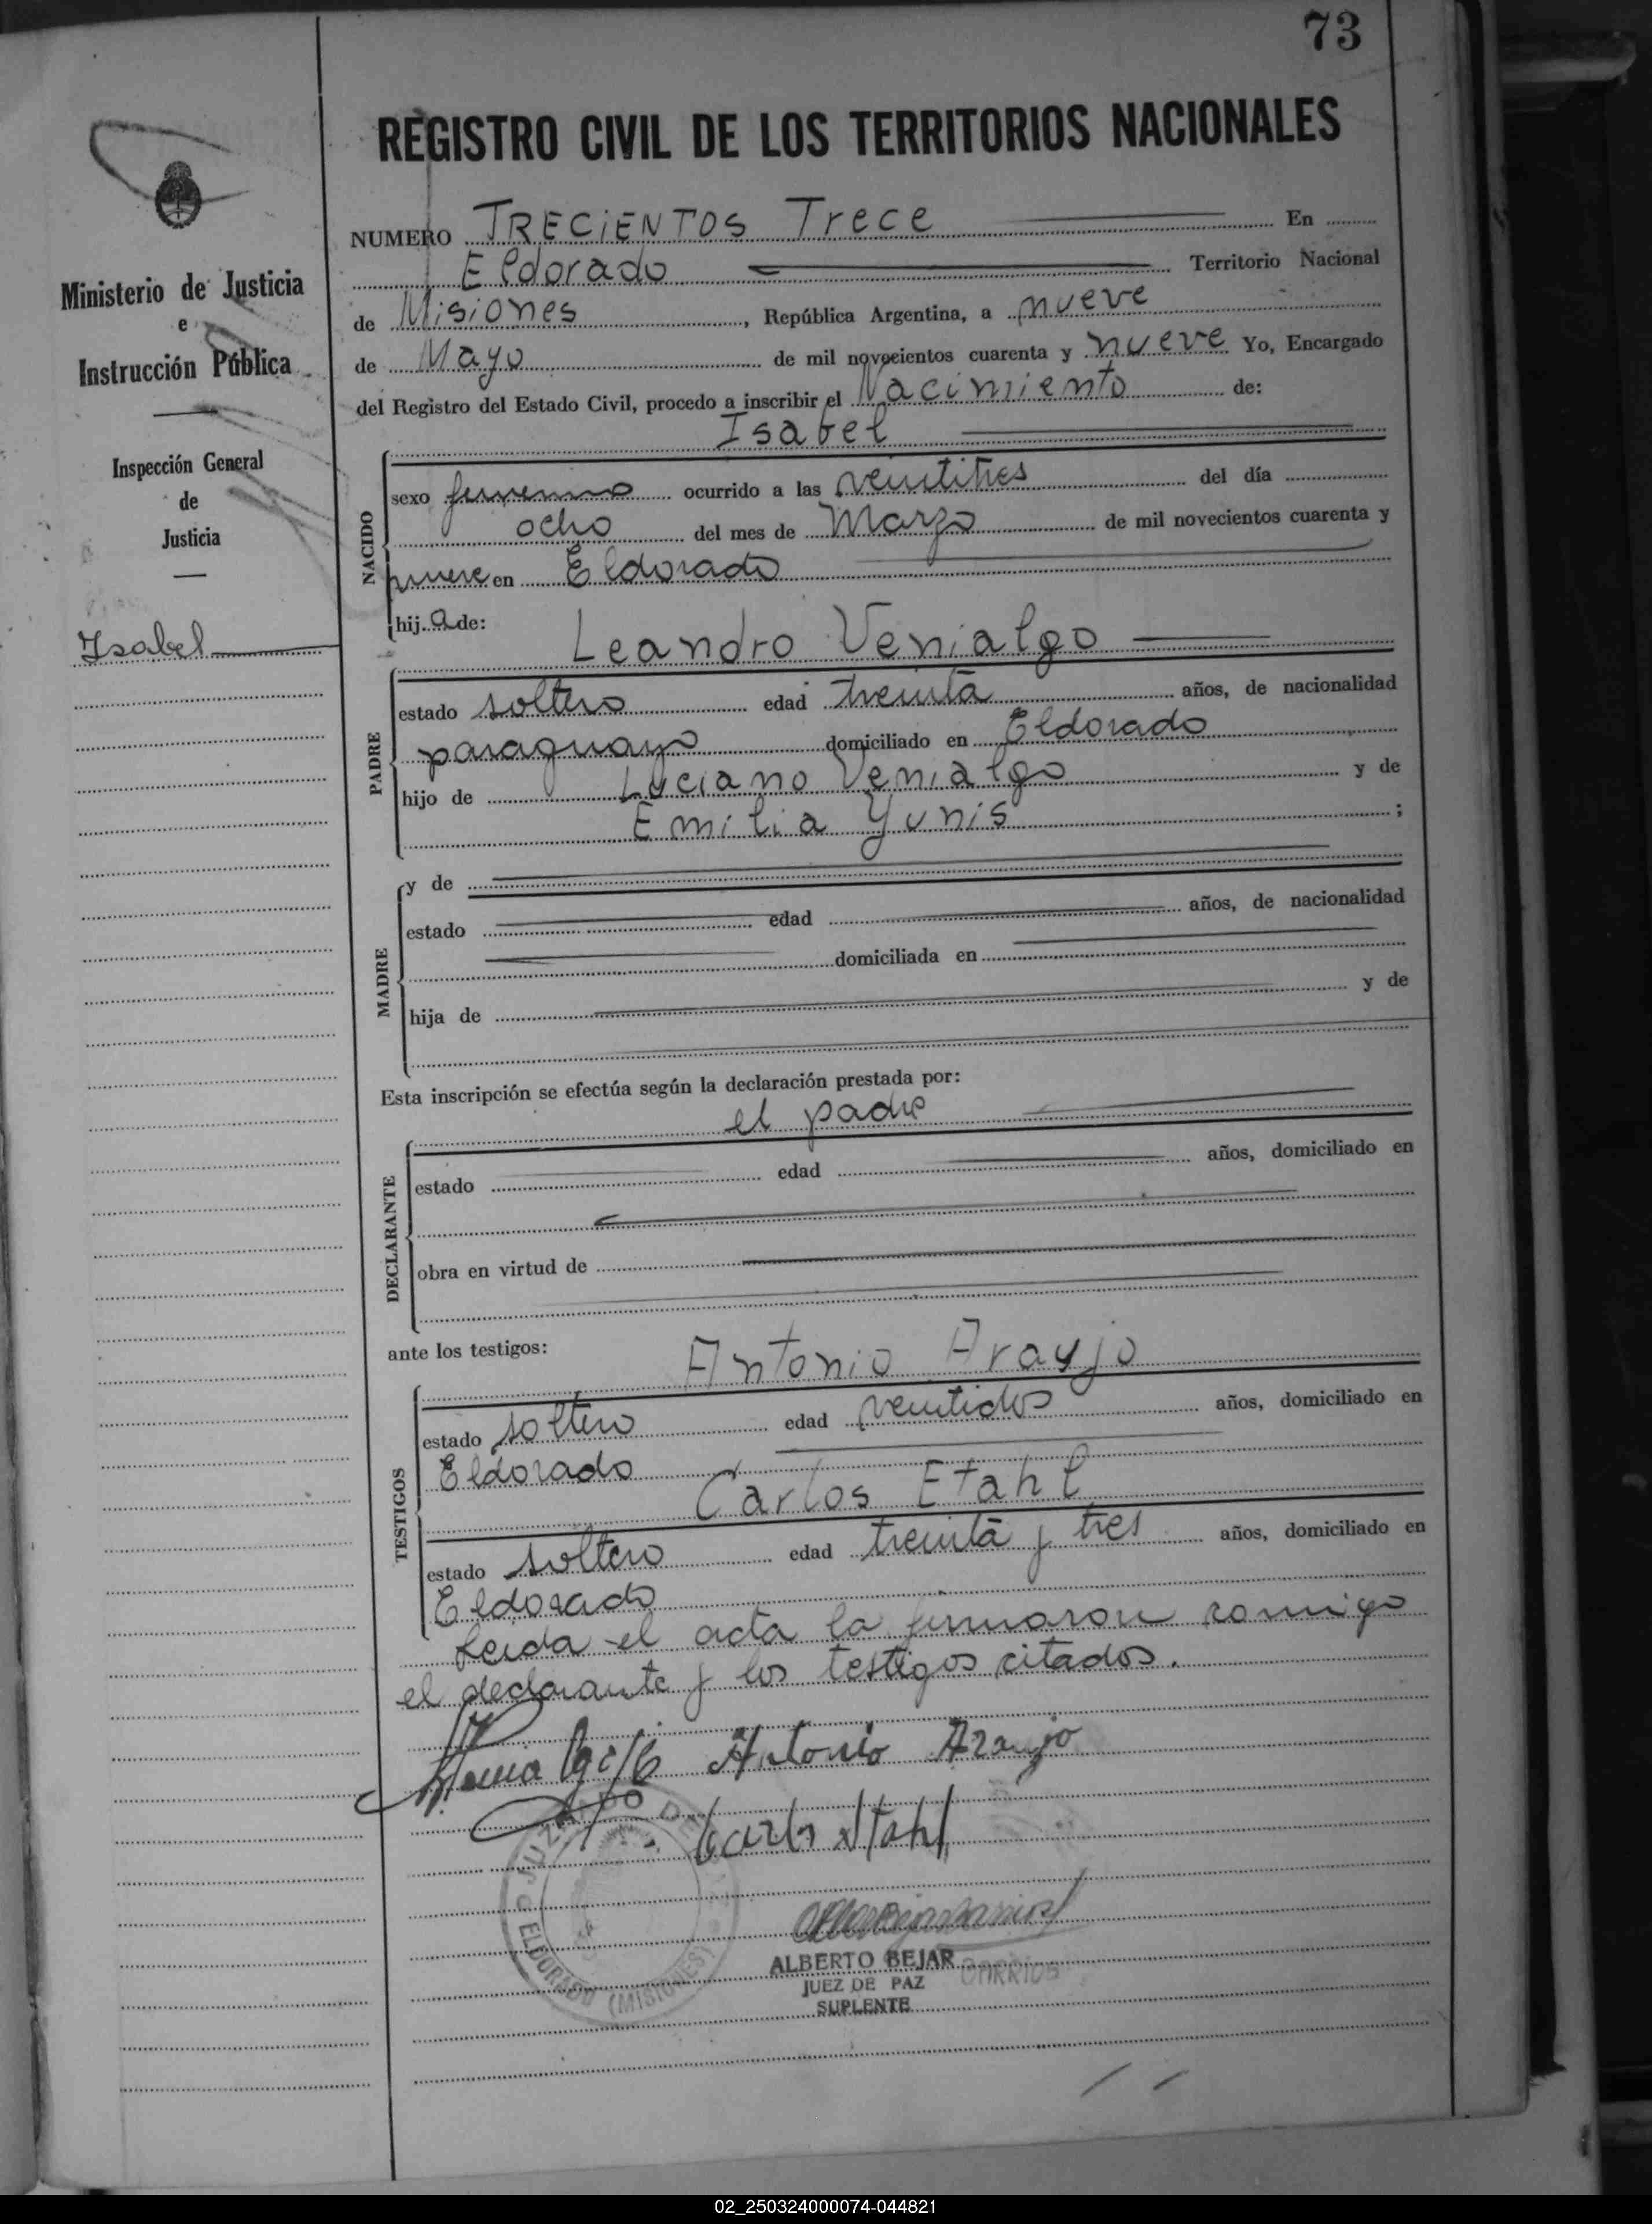 73
REGISTRO CIVIL DE LOS TERRITORIOS NACIONALES
Ministerio de Justicia
e
Instrucción Pública
Inspección General
de
Justicia
Isabel
NUMERO TRECIENTOS Trece En
Eldorado Territorio Nacional
de Misiones, República Argentina, a nueve
de Mayo de mil novecientos cuarenta y nueve Yo, Encargado
del Registro del Estado Civil, procedo a inscribir el Nacimiento de:
Isabel
NACIDO
sexo femenino ocurrido a las veintitres del día
ocho del mes de Marzo de mil novecientos cuarenta y
nueve en Eldorado
hij.a de:
Leandro Venialgo
PADRE
estado soltero edad treinta años, de nacionalidad
paraguayo domiciliado en Eldorado
hijo de Luciano Venialgo y de
Emilia Yunis ;
MADRE
y de
estado edad años, de nacionalidad
domiciliada en
hija de y de
Esta inscripción se efectúa según la declaración prestada por:
el padre
DECLARANTE
estado edad años, domiciliado en
obra en virtud de
ante los testigos:
Antonio Araujo
TESTIGOS
estado soltero edad veintidos años, domiciliado en
Eldorado
Carlos Etahl
estado soltero edad treinta y tres años, domiciliado en
Eldorado
Leida el acta la firmaron comigo
el declarante y los testigos citados.
Antonio Araujo
Carlos Stahl
JUZGADO DE
ELDORADO (MISIONES)
ALBERTO BEJAR BARRIOS
JUEZ DE PAZ
SUPLENTE
02_250324000074-044821